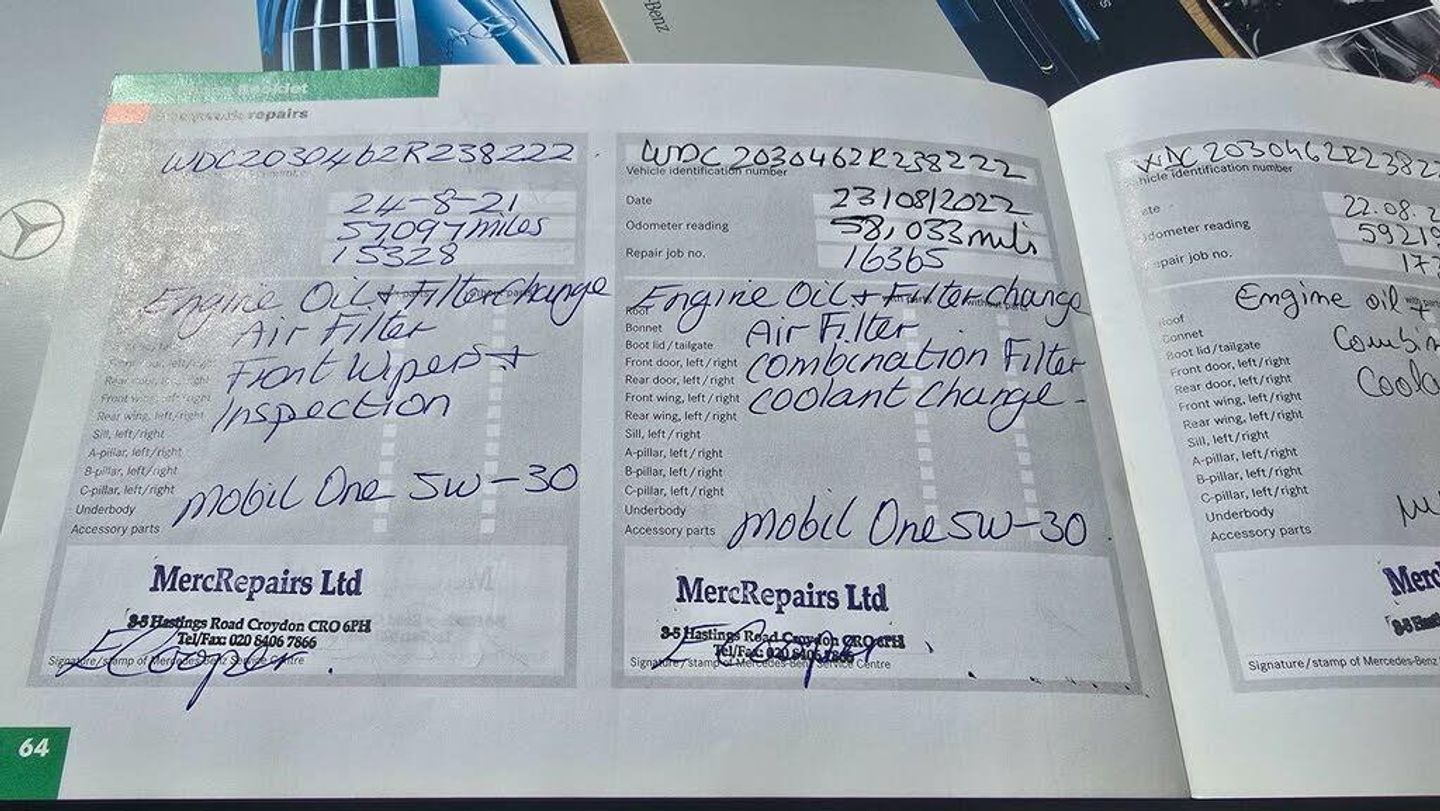 Benz
Booklet
repairs
WDC2030462R238222
24-8-21
57,097 miles
15328
Engine Oil + Filter change
Air Filter
Front Wipers +
Inspection
Front wing, left/right
Rear wing, left/right
Sill, left/right
A-pillar, left/right
B-pillar, left/right
C-pillar, left/right
Underbody
Accessory parts
Mobil One 5W-30
MercRepairs Ltd
3-5 Hastings Road Croydon CRO 6PH
Tel/Fax: 020 8406 7866
Signature/stamp of Mercedes-Benz Service Centre
E Cooper.
64
WDC2030462R238222
Vehicle identification number
Date 23/08/2022
Odometer reading 58,033 miles
Repair job no. 16365
Engine Oil + Filter change
Roof
Bonnet Air Filter
Boot lid/tailgate
Front door, left/right Combination Filter
Rear door, left/right
Front wing, left/right Coolant change -
Rear wing, left/right
Sill, left/right
A-pillar, left/right
B-pillar, left/right
C-pillar, left/right
Underbody
Accessory parts Mobil One 5W-30
MercRepairs Ltd
3-5 Hastings Road Croydon CRO 6PH
Tel/Fax: 020 8406 7866
Signature/stamp of Mercedes-Benz Service Centre
WDC2030462R23822
hicle identification number
ate 22.08.2
dometer reading 59219
epair job no. 17
Engine oil +
oof
onnet Combin
Boot lid/tailgate
Front door, left/right Coola
Rear door, left/right
Front wing, left/right
Rear wing, left/right
Sill, left/right
A-pillar, left/right
B-pillar, left/right
C-pillar, left/right
Underbody
Accessory parts
Merc
3-5 Hast
Signature/stamp of Mercedes-Benz